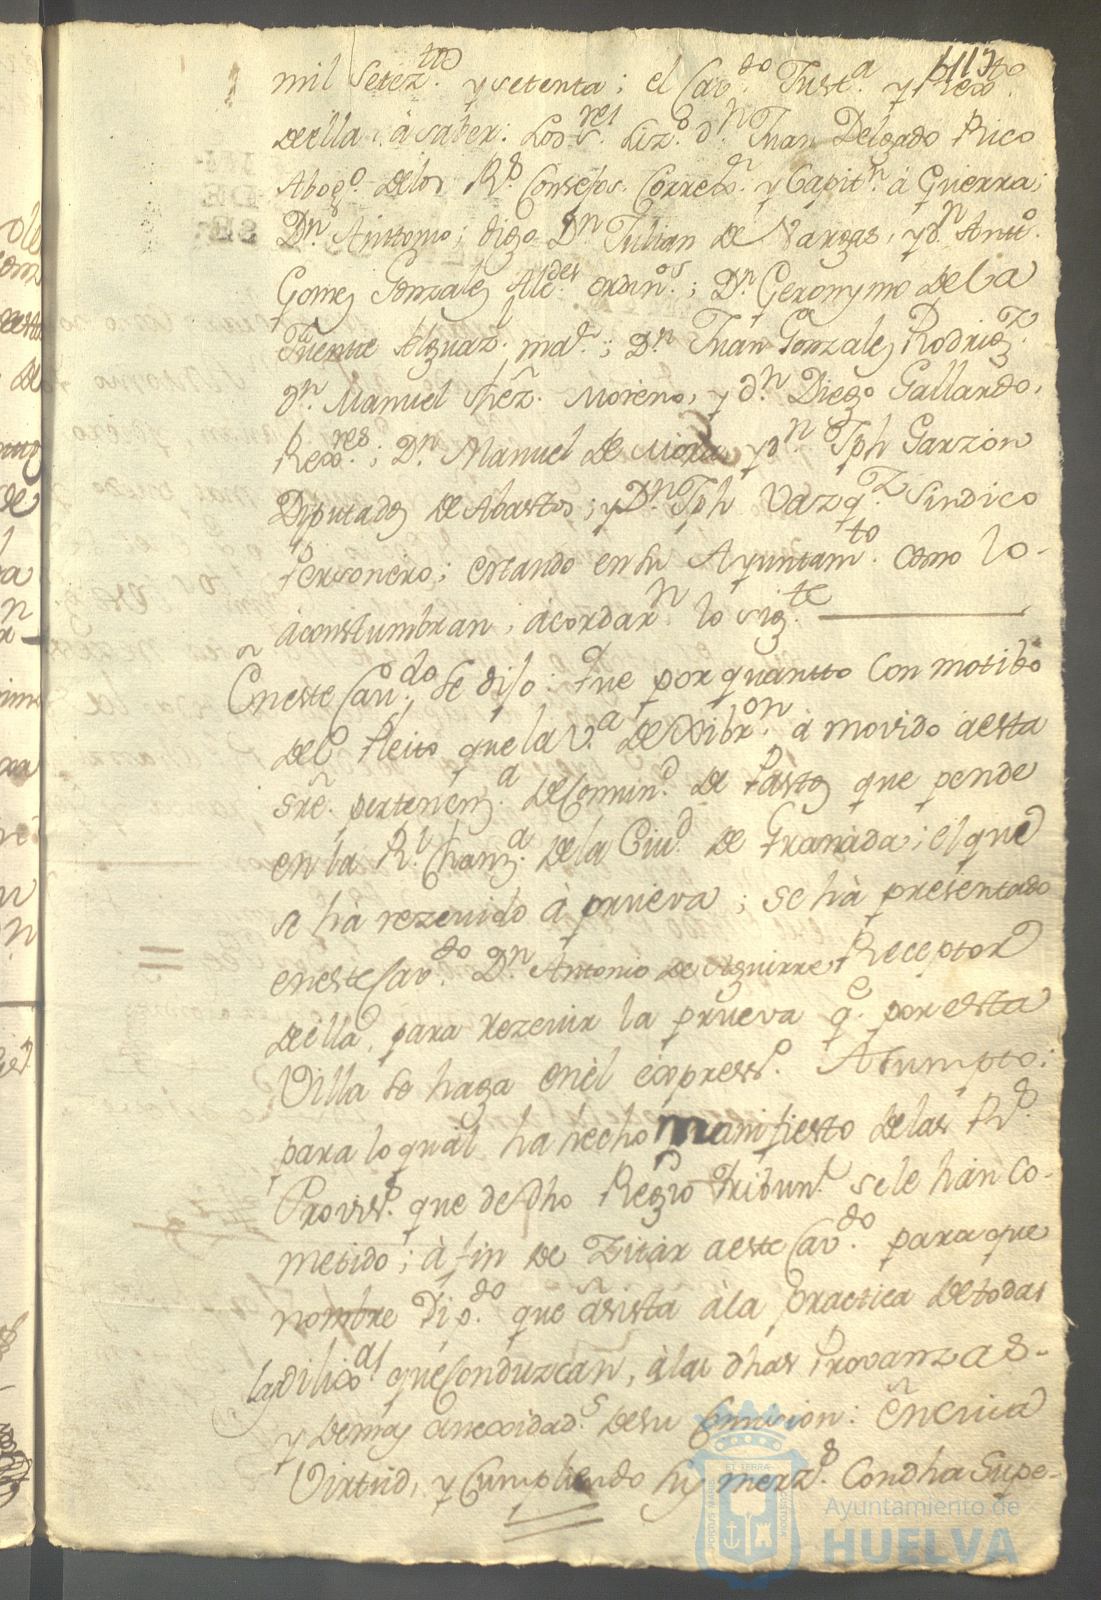 417
mil Setez.tos y setenta; el Cav.do Just.a y Rex.to
de ella: â saber: Los S.res Liz.do d.n Juan Delgado Rico
Abog.o de los R.s Consejos Correx.or y Capit.n â Guerra;
D.n Antonio; digo D.n Julian de Vargas, y d.n Ant.o
Gomez Gonzalez Alc.des ordin.os; D.n Geronymo de la
Fuente Alguaz.l ma.or; D.n Juan Gonzalez Rodrig.z
d.n Manuel Shēz. Moreno, y d.n Diego Gallardo,
Rex.res; D.n Manuel de Mora y d.n Jph Garzion
Diputados de Abastos; y D.n Jph Vazq.z Sindico
Personero; estando en su Ayuntam.to como lo-
âcostumbran, âcordar.n lo sig.te
En este Cav.do Se dijo: Que por quantto Con motibo
del Pleito que la V.a de Xibr.on â movido a esta
sre. pertenen.a de Comun.d de Pastos que pende
en la R.l Chanz.a de la Ciu.d de Granada; el que
se hà rezevido â prueva; se hà presentado
en este Cav.do D.n Antonio de Aguirre Receptor
de ella, para rezevir la prueva q.e por esta
Villa se haga en èl expres.do Asumpto:
para lo quàl ha hecho manifiesto de las R.s
Provis.s que de dho Regio Tribun.l se le hàn Co-
metido; à fin de Zitàr a este Cav.do para que
nombre Dip.do que àsista àla practica de todas
las dilix.as que Conduzcan, àlas dhas Provanzas-
y demas anexidad.s de su Comision: En cuia
Virtud, y Cumpliendo sus merz.s Con dha Supe-
Ayuntamiento de
HUELVA